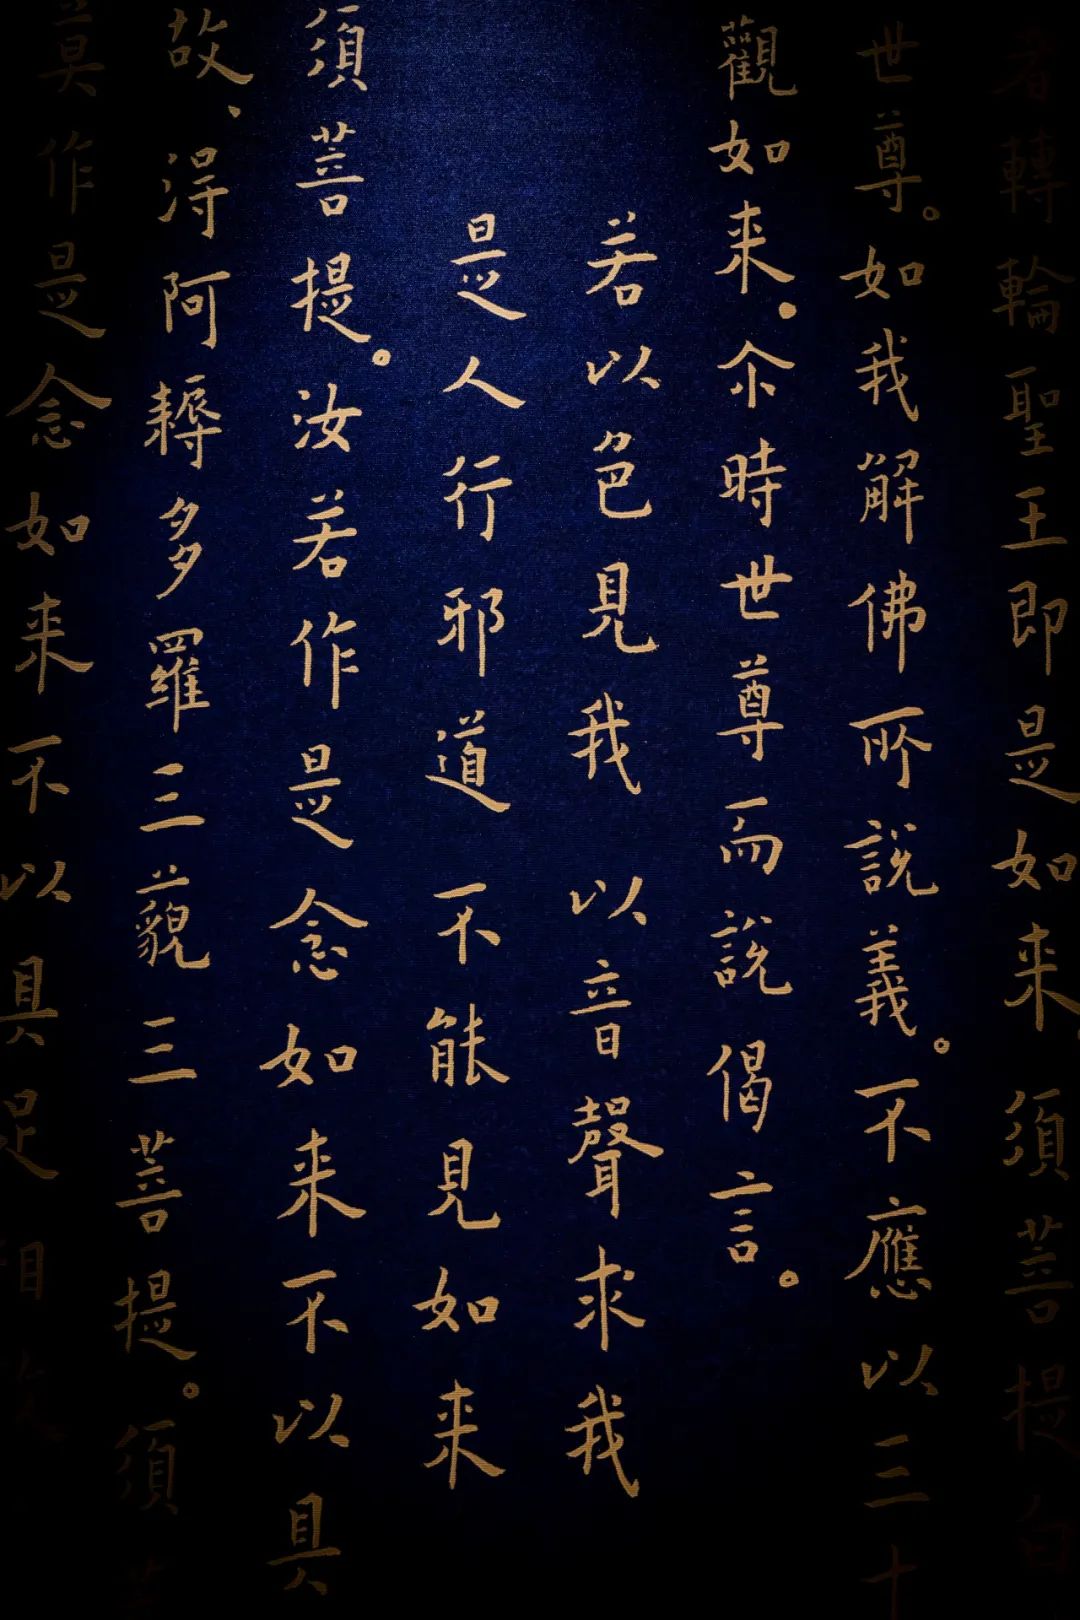 者轉輪聖王即是如来須菩提白
世尊。如我解佛所說義。不應以三十
觀如来.尒時世尊而說偈言。
若以色見我以音聲求我
是人行邪道不能見如来
須菩提。汝若作是念如来不以具
故、得阿耨多羅三藐三菩提。須菩
莫作是念如来不以具足相故